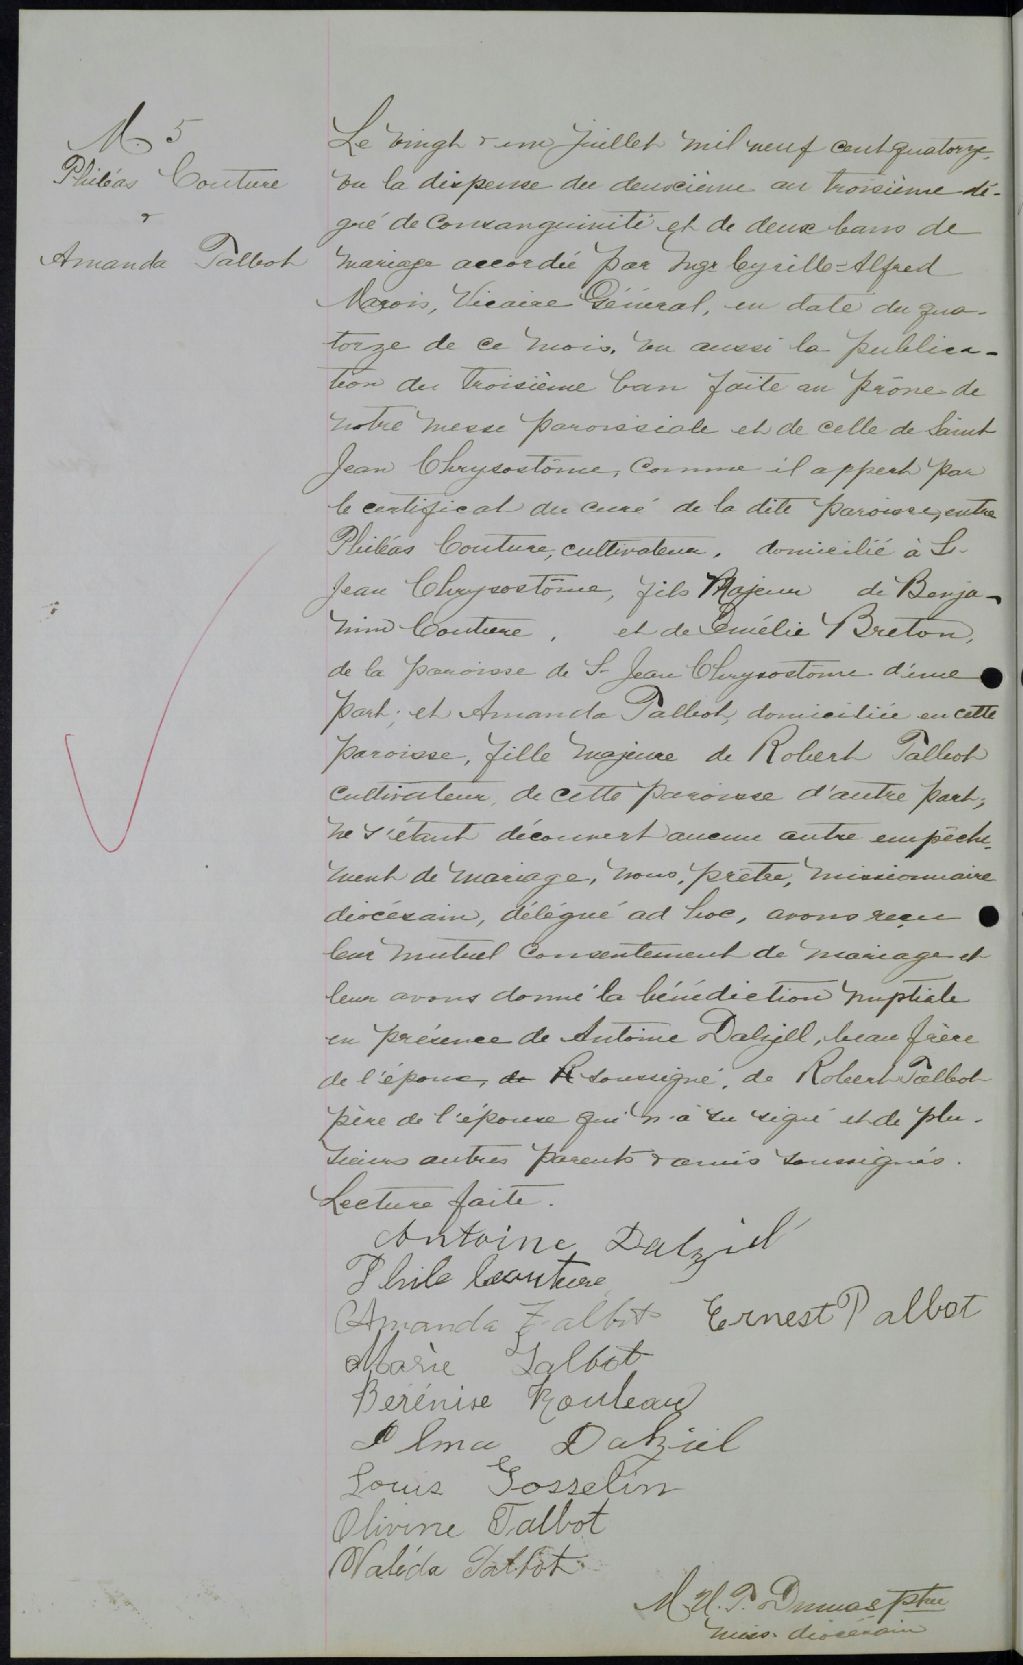 M. 5
Philéas Couture
&
Amanda Talbot
Le vingt & un juillet mil neuf cent quatorze,
vu la dispense du deuxième au troisième dé-
gré de consanguinité et de deux bans de
mariage accordée par Mgr Cyrille-Alfred
Marois, Vicaire Général, en date du qua-
torze de ce mois, vu aussi la publica-
tion du troisième ban faite au prône de
notre messe paroissiale et de celle de Saint
Jean Chrysostôme, comme il appert par
le certificat du curé de la dite paroisse, entre
Philéas Couture, cultivateur, domicilié à St-
Jean Chrysostôme, fils Majeur de Benja-
min Couture, et de Emélie Breton,
de la paroisse de St Jean Chrysostôme d'une
part; et Amanda Talbot, domiciliée en cette
paroisse, fille majeure de Robert Talbot
cultivateur, de cette paroisse d'autre part;
ne s'étant découvert aucun autre empêche-
ment de mariage, nous, prêtre, missionnaire
diocésain, délégué ad hoc, avons reçu
leur mutuel consentement de mariage et
leur avons donné la bénédiction nuptiale
en présence de Antoine Dalzell, beau frère
de l'époux, de R soussigné, de Robert Talbot
père de l'épouse qui n'a su signé et de plu-
sieurs autres parents & amis soussignés.
Lecture faite.
Antoine Dalziel
Phile Couture
Amanda Talbot Ernest Talbot
Marie Talbot
Bérénise Rouleau
Alma Dalziel
Louis Gosselin
Olivine Talbot
Valéda Talbot
M. H. P. Dumas ptre
miss. diocésain